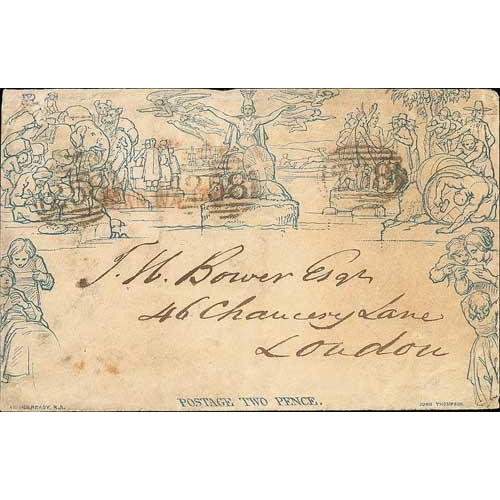 T. H. Bower Esqr
46 Chancery Lane
London
POSTAGE TWO PENCE.
JOHN THOMPSON